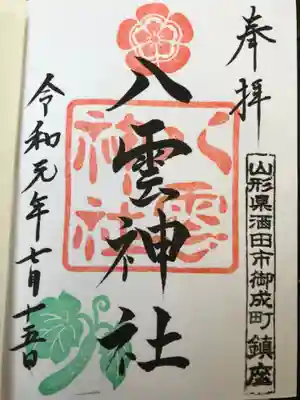 奉拝
山形県酒田市御成町 鎮座
八雲神社
八雲神社
令和元年七月十五日